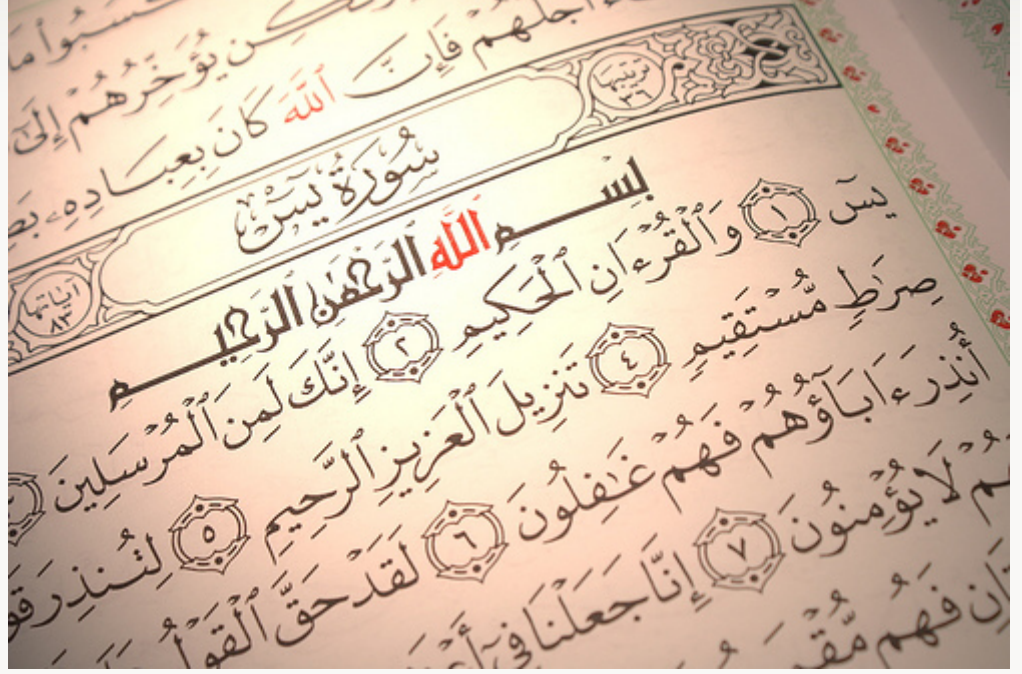 كَسَبُوا۟ مَا
يُؤَخِّرُهُمْ إِلَىٰٓ
أَجَلُهُمْ فَإِنَّ ٱللَّهَ كَانَ بِعِبَادِهِۦ
ترتيبها ٣٦
سُورَةُ يسٓ
آياتها ٨٣
بِسْمِ ٱللَّهِ ٱلرَّحْمَٰنِ ٱلرَّحِيمِ
يسٓ ١ وَٱلْقُرْءَانِ ٱلْحَكِيمِ ٢ إِنَّكَ لَمِنَ ٱلْمُرْسَلِينَ
صِرَٰطٍ مُّسْتَقِيمٍ ٤ تَنزِيلَ ٱلْعَزِيزِ ٱلرَّحِيمِ ٥ لِتُنذِرَ
أُنذِرَ ءَابَآؤُهُمْ فَهُمْ غَٰفِلُونَ ٦ لَقَدْ حَقَّ ٱلْقَوْلُ
لَا يُؤْمِنُونَ ٧ إِنَّا جَعَلْنَا فِىٓ
فَهُم